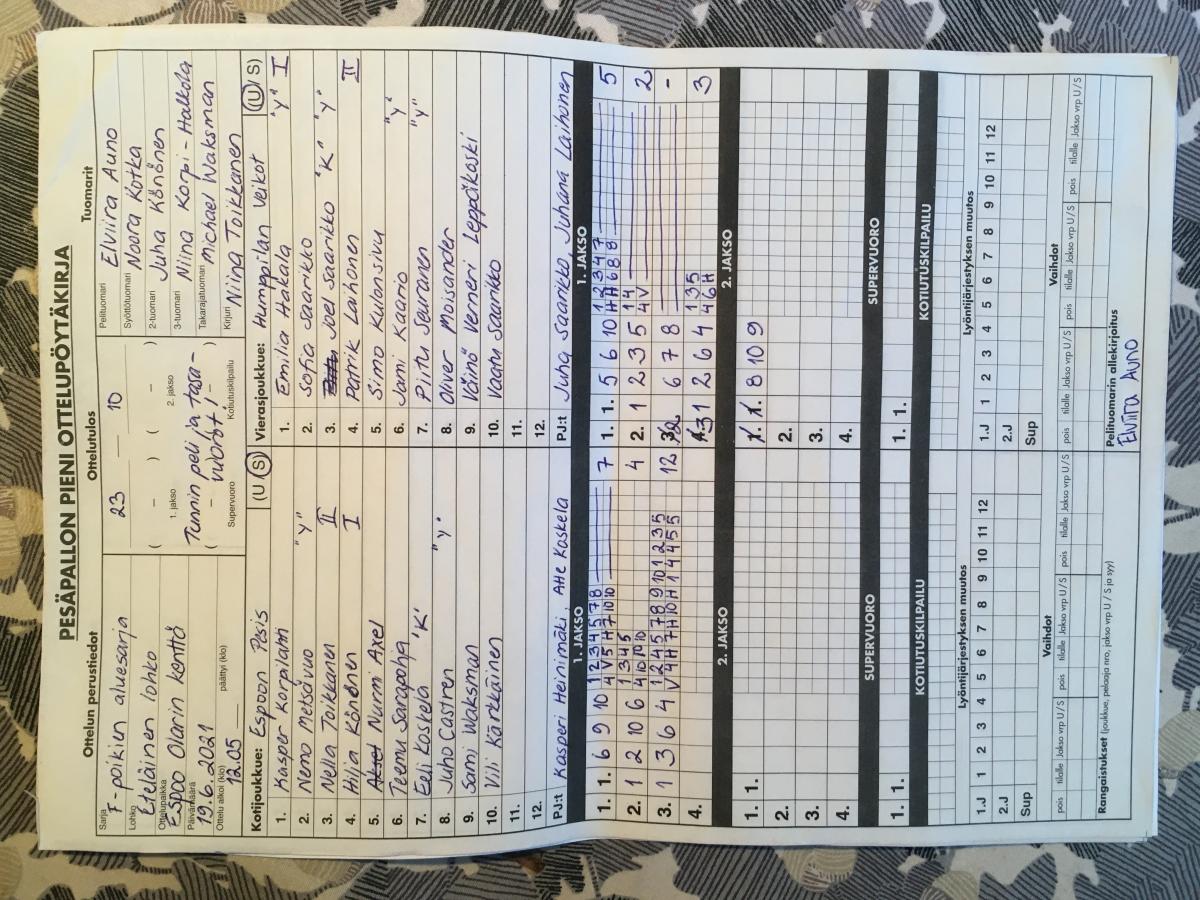 PESÄPALLON PIENI OTTELUPÖYTÄKIRJA
Ottelun perustiedot
Ottelutulos
Tuomarit
Sarja
F-poikien aluesarja
Lohko
Eteläinen lohko
Ottelupaikka
Espoo Olarin kenttä
Päivämäärä
19.6.2021
Ottelu alkoi (klo)
12.05
päättyi (klo)
23 — 10
( – ) ( – )
1. jakso
2. jakso
Tunnin peli ja tasa-
vuorot!
( – –
Supervuoro
Kotiutuskilpailu
Pelituomari Elviira Auno
Syöttötuomari Noora Kotka
2-tuomari Juha Könönen
3-tuomari Niina Korpi-Halkola
Takarajatuomari Michael Waksman
Kirjuri Niina Toikkanen
Kotijoukkue: Espoon Pesis (U S)
1. Kasper Korpilahti
2. Nemo Metsävuo "y"
3. Nella Toikkanen II
4. Hilja Könönen I
5. Aksel Nurmi Axel
6. Teemu Sarapoha
7. Eeli Koskela "K"
8. Juho Castren "y"
9. Sami Waksman
10. Vili Kärkkäinen
11.
12.
PJ:t Kasperi Heinimäki, Atte Koskela
Vierasjoukkue: Humppilan Veikot (U S)
1. Emilia Hakala "y" I
2. Sofia Saarikko
3. Joel Saarikko "K" "y"
4. Patrik Laihonen II
5. Simo Kuonsivu
6. Jami Kaario "y"
7. Piitu Seuranen "y"
8. Oliver Moisander
9. Väinö Verneri Leppäkoski
10. Vaatu Saarikko
11.
12.
PJ:t Juha Saarikko, Juhana Laihonen
1. JAKSO
1. 1. 6 9 10 1 2 3 4 5 7 8 7
4 V 5 H 7 10 10
2. 1 2 10 6 1 3 4 5 4
4 10 10 10
3. 1 3 6 4 1 2 4 5 7 8 9 10 1 2 3 5 12
V 4 H 7 H 10 H 1 4 4 5 5
4.
1. JAKSO
1. 1. 5 6 10 1 2 3 4 7 5
H H 6 8 8
2. 1 2 3 5 1 4 2
4 V
3. 2 6 7 8 -
4. 3 1 2 6 4 1 3 5 3
4 6 H
2. JAKSO
1. 1.
2.
3.
4.
2. JAKSO
1. 1. 8 10 9
2.
3.
4.
SUPERVUORO
1. 1.
SUPERVUORO
1. 1.
KOTIUTUSKILPAILU
KOTIUTUSKILPAILU
Lyöntijärjestyksen muutos
1.J 1 2 3 4 5 6 7 8 9 10 11 12
2.J
Sup
Lyöntijärjestyksen muutos
1.J 1 2 3 4 5 6 7 8 9 10 11 12
2.J
Sup
Vaihdot
pois tilalle Jakso vrp U / S pois tilalle Jakso vrp U / S pois tilalle Jakso vrp U / S
Vaihdot
pois tilalle Jakso vrp U / S pois tilalle Jakso vrp U / S pois tilalle Jakso vrp U / S
Rangaistukset (joukkue, pelaaja nro, jakso vrp U / S ja syy)
Pelituomarin allekirjoitus
Elviira Auno